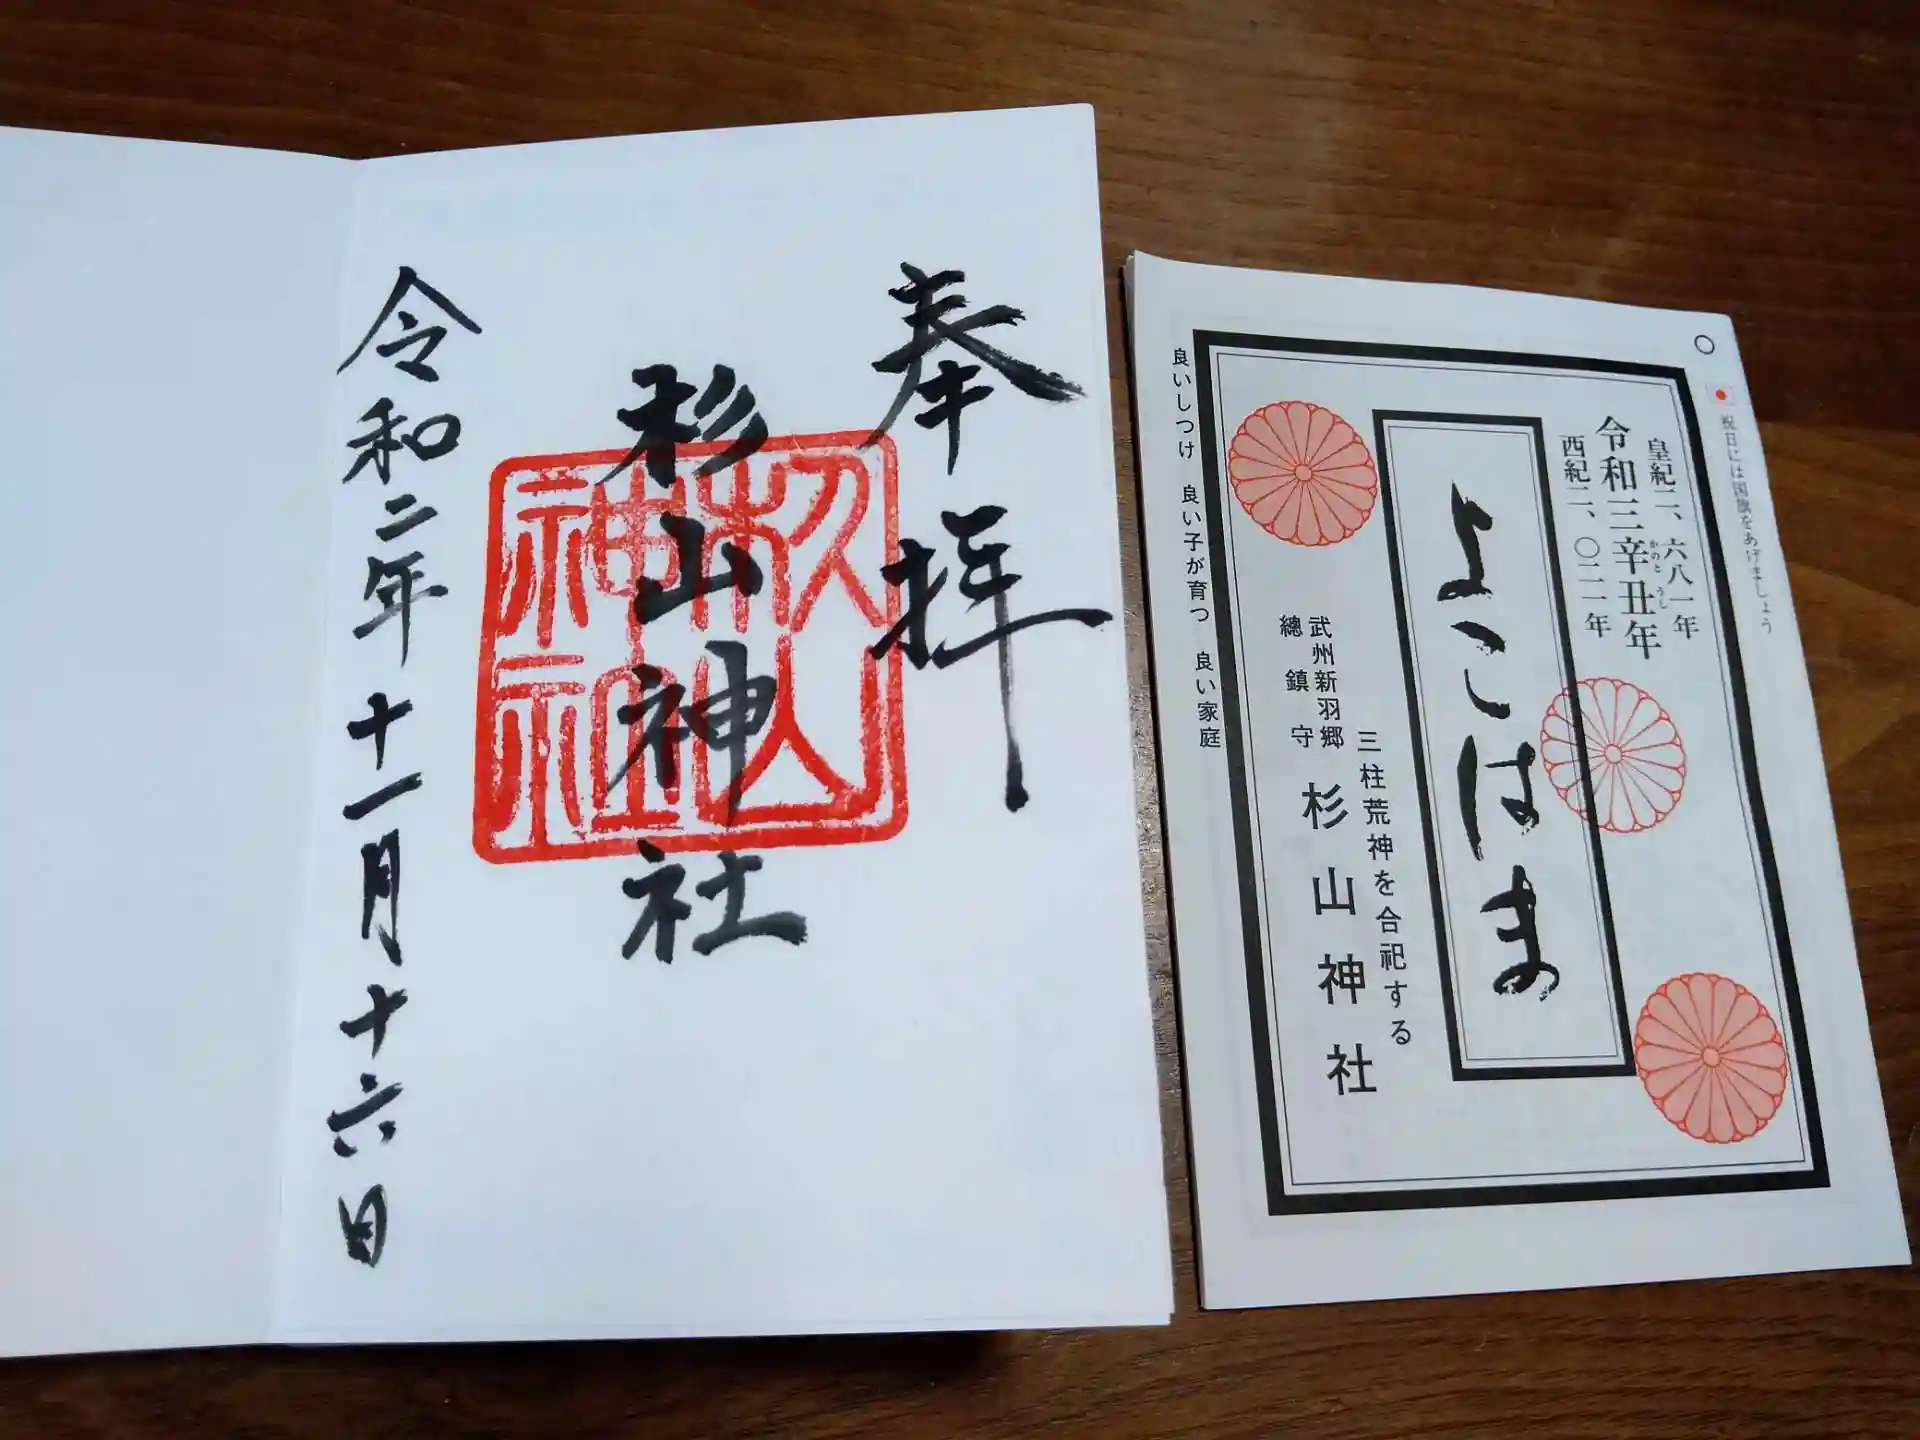 奉拝
杉山神社
杉山神社
令和二年十一月十六日
祝日には国旗をあげましょう
皇紀二、六八一年
令和三辛丑年
かのと うし
西紀二、〇二一年
よこはま
三柱荒神を合祀する
武州新羽郷
總鎮守
杉山神社
良いしつけ 良い子が育つ 良い家庭